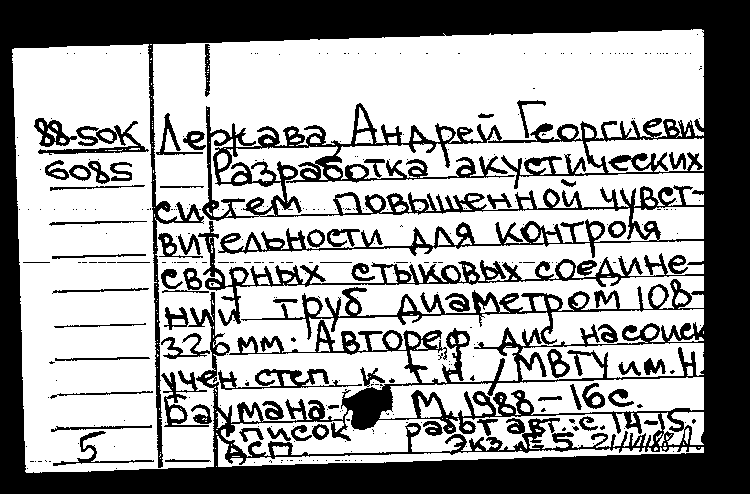 88-50К Державa, Андрей Георгиевич
6085 Разработка акустических
систем повышенной чувст-
вительности для контроля
сварных стыковых соедине-
ний труб диаметром 108-
326 мм: Автореф. дис. на соиск
учен. степ. к. т. н. / МВТУ им. Н.
Баумана- М, 1988.- 16 с.
Список работ авт.: с. 14-15.
5 ДСП. Экз. № 5. 21/VII88